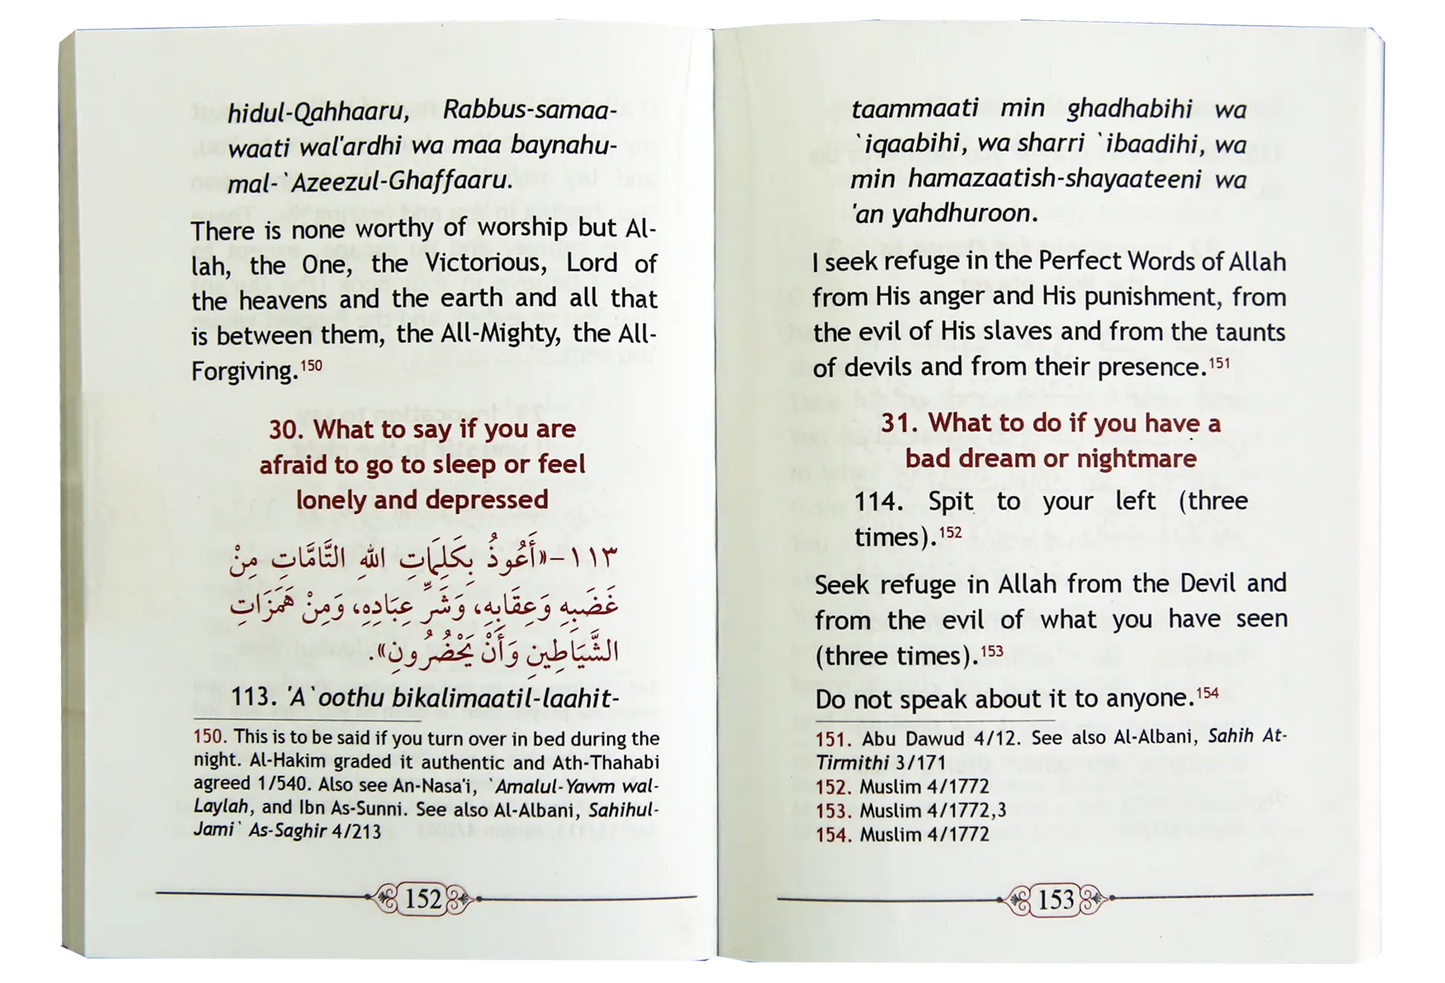 hidul-Qahhaaru, Rabbus-samaa-
waati wal'ardhi wa maa baynahu-
mal-`Azeezul-Ghaffaaru.
There is none worthy of worship but Al-
lah, the One, the Victorious, Lord of
the heavens and the earth and all that
is between them, the All-Mighty, the All-
Forgiving.150
30. What to say if you are
afraid to go to sleep or feel
lonely and depressed
١١٣–«أَعُوذُ بِكَلِمَاتِ اللهِ التَّامَّاتِ مِنْ
غَضَبِهِ وَعِقَابِهِ، وَشَرِّ عِبَادِهِ، وَمِنْ هَمَزَاتِ
الشَّيَاطِينِ وَأَنْ يَحْضُرُونِ».
113. 'A`oothu bikalimaatil-laahit-
150. This is to be said if you turn over in bed during the
night. Al-Hakim graded it authentic and Ath-Thahabi
agreed 1/540. Also see An-Nasa'i, `Amalul-Yawm wal-
Laylah, and Ibn As-Sunni. See also Al-Albani, Sahihul-
Jami` As-Saghir 4/213
152
taammaati min ghadhabihi wa
`iqaabihi, wa sharri `ibaadihi, wa
min hamazaatish-shayaateeni wa
'an yahdhuroon.
I seek refuge in the Perfect Words of Allah
from His anger and His punishment, from
the evil of His slaves and from the taunts
of devils and from their presence.151
31. What to do if you have a
bad dream or nightmare
114. Spit to your left (three
times).152
Seek refuge in Allah from the Devil and
from the evil of what you have seen
(three times).153
Do not speak about it to anyone.154
151. Abu Dawud 4/12. See also Al-Albani, Sahih At-
Tirmithi 3/171
152. Muslim 4/1772
153. Muslim 4/1772,3
154. Muslim 4/1772
153